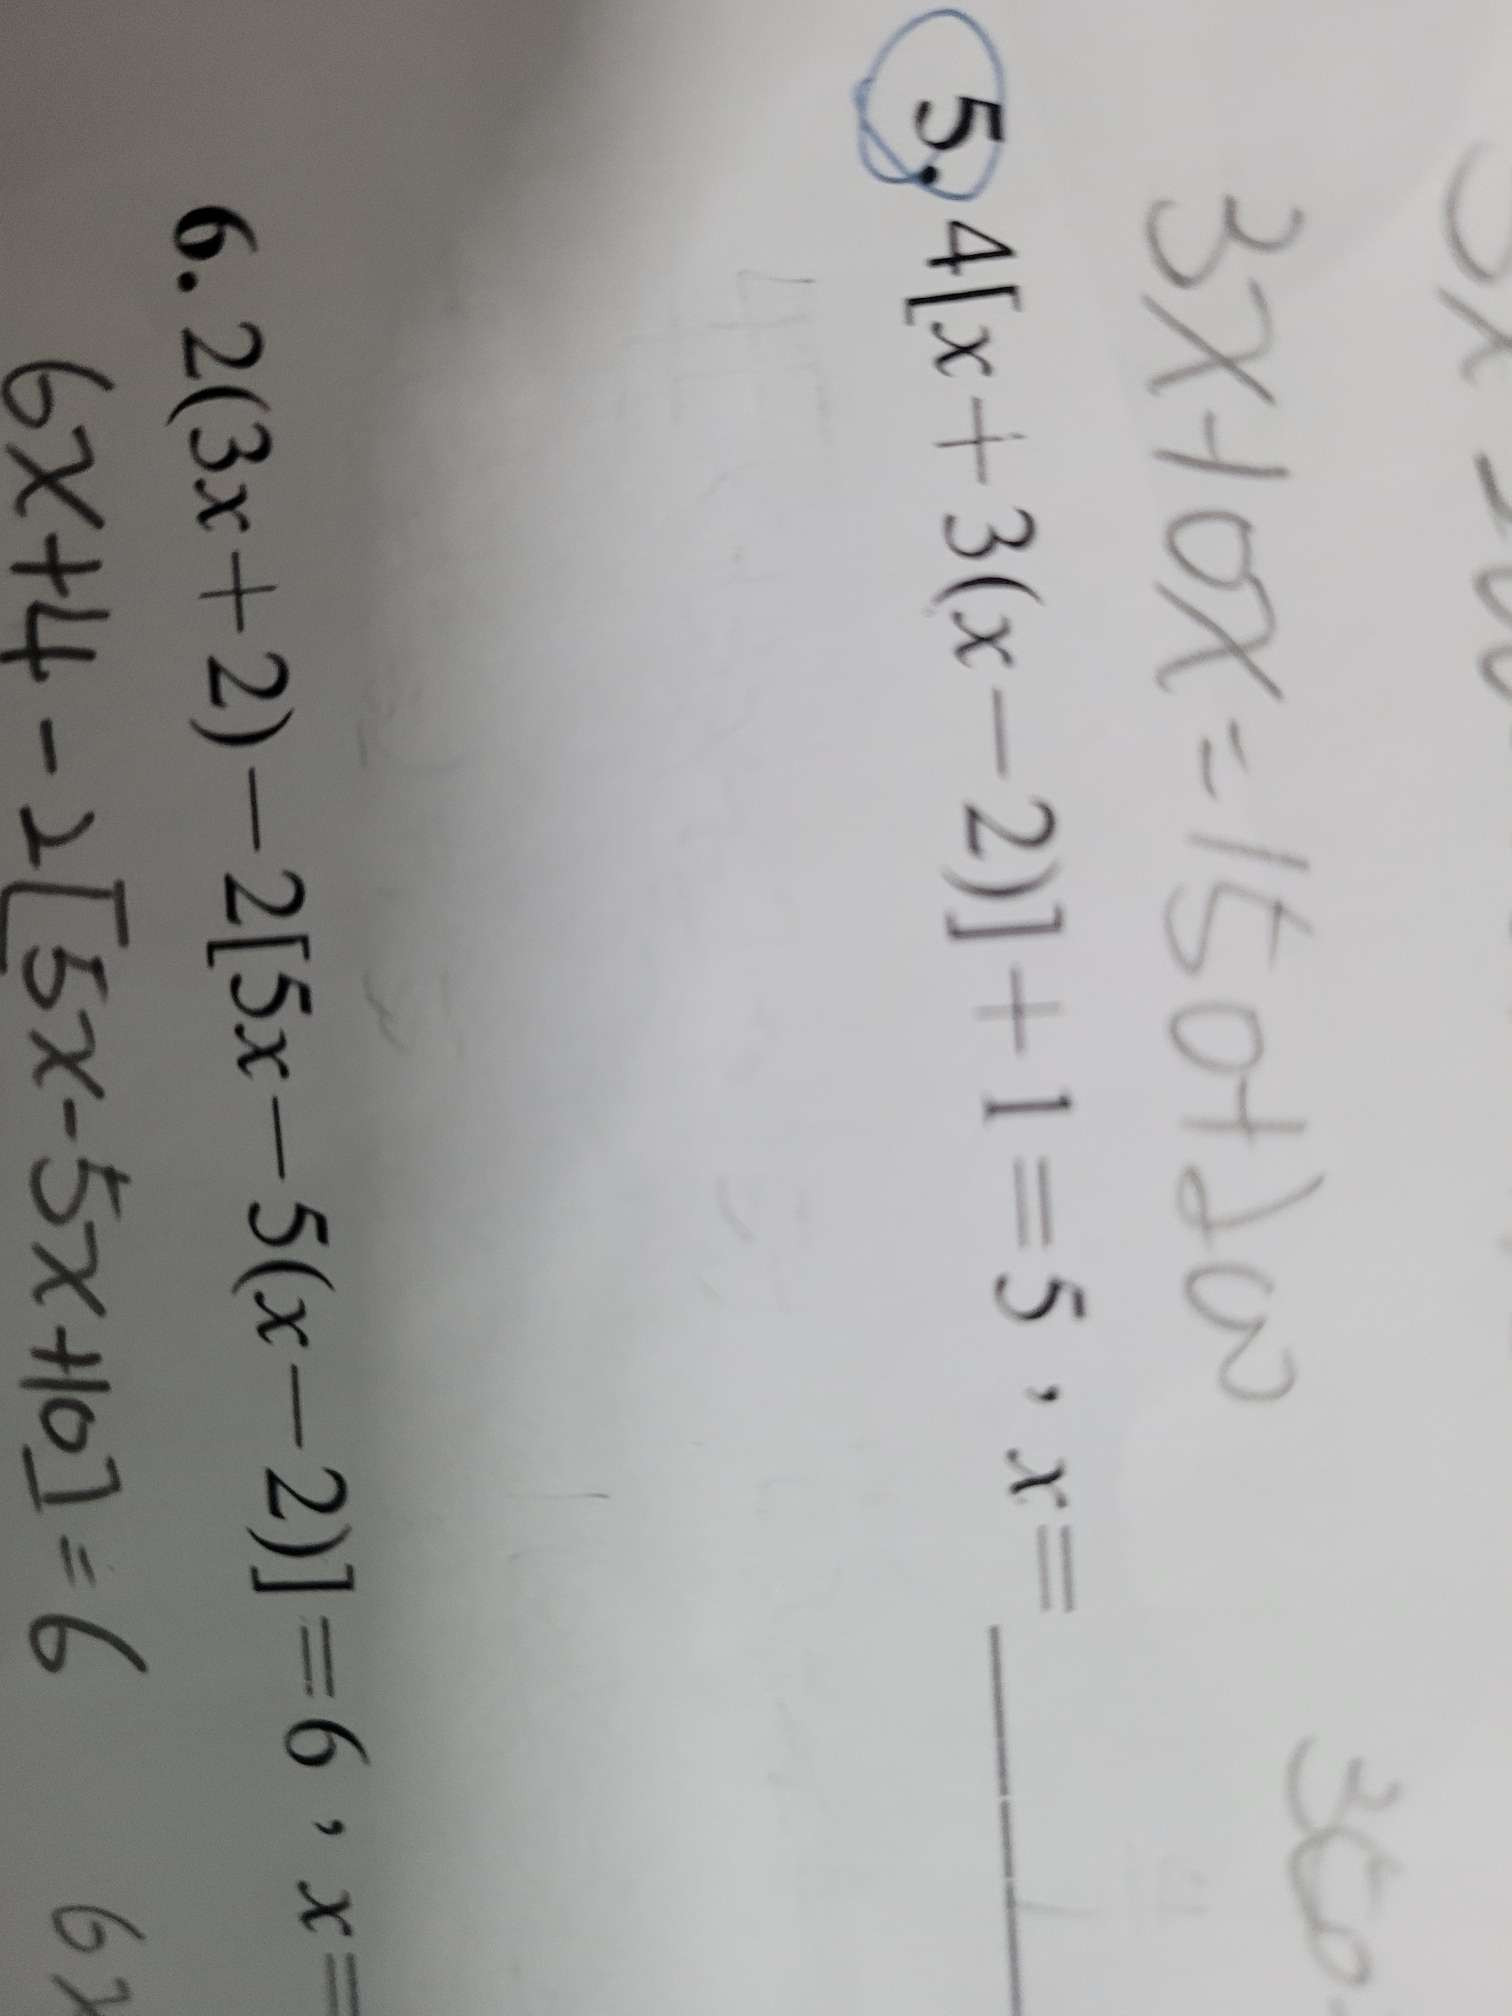 3x+10x=150+20
5. 4[x+3(x−2)]+1=5，x=
6. 2(3x+2)−2[5x−5(x−2)]=6，x=
6x+4-2[5x-5x+10]=6 6x